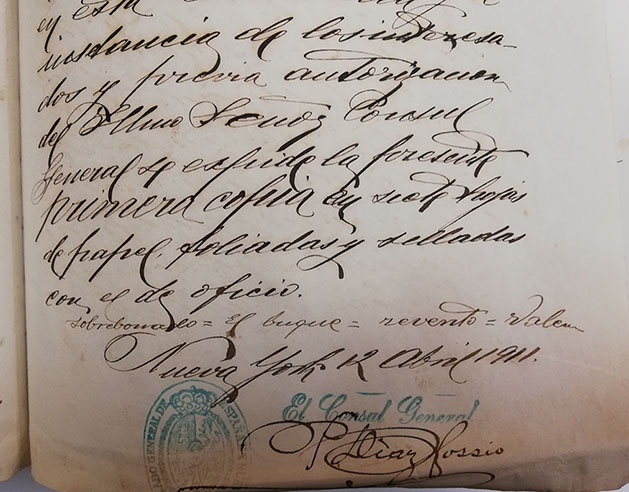 en esta
instancia de los interesa-
dos y previa autorizacion
del Illmo Señor Consul
General se expide la presente
primera copia en siete hojas
de papel foliadas y selladas
con el de oficio.
sobreborrado = El buque = revento = Valen
Nueva York 12 Abril 1911.
El Consul General
P. Diaz Cossio
ADO GENERAL DE ESPAÑA